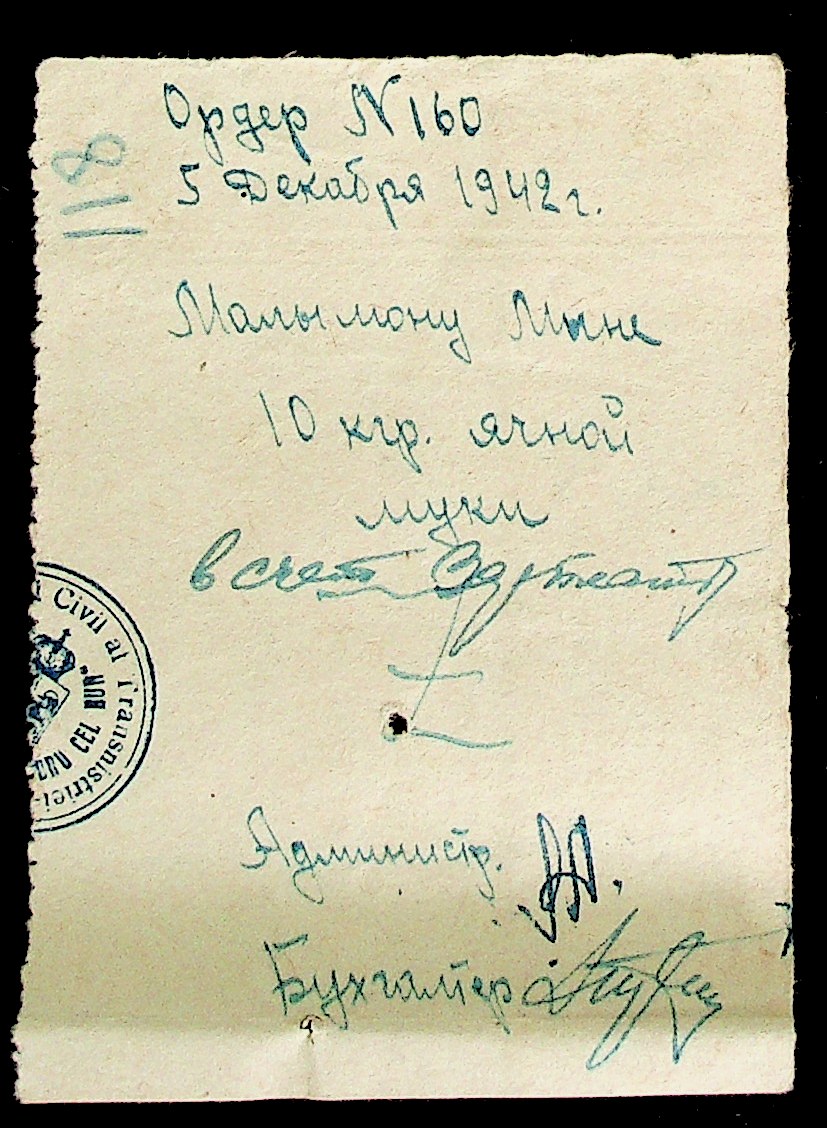 Ордер N 160
118
5 Декабря 1942 г.
Малымону Мине
10 кгр. ячной
муки
в счет Зарплаты
Civil al Transnistriei
DRU CEL BUN"
Администр.
Бухгалтер